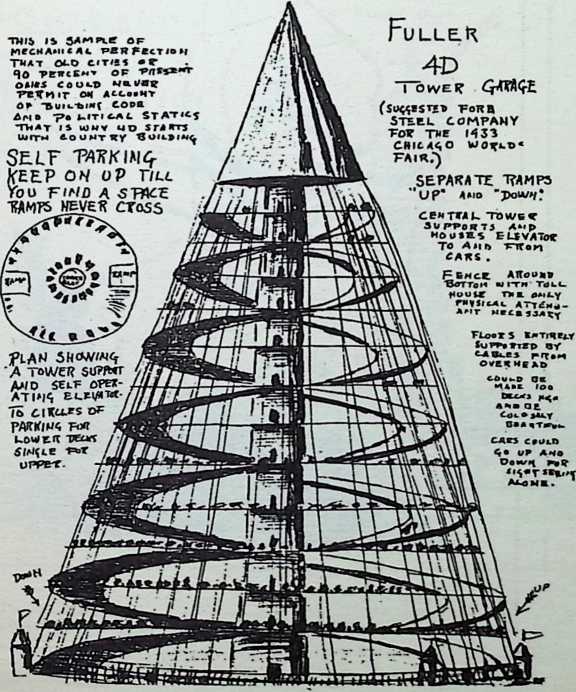 THIS IS SAMPLE OF
MECHANICAL PERFECTION
THAT OLD CITIES OR
90 PERCENT OF PRESENT
ONES COULD NEVER
PERMIT ON ACCOUNT
OF BUILDING CODE
AND POLITICAL STATICS
THAT IS WHY 4D STARTS
WITH COUNTRY BUILDING
SELF PARKING
KEEP ON UP TILL
YOU FIND A SPACE
RAMPS NEVER CROSS
RAMP
RAMP
PLAN SHOWING
A TOWER SUPPORT
AND SELF OPER-
ATING ELEVATOR.
TO CIRCLES OF
PARKING FOR
LOWER DECKS
SINGLE FOR
UPPER.
DOWN
FULLER
4D
TOWER GARAGE
(SUGGESTED FORB
STEEL COMPANY
FOR THE 1933
CHICAGO WORLDS
FAIR.)
SEPARATE RAMPS
"UP" AND "DOWN."
CENTRAL TOWER
SUPPORTS AND
HOUSES ELEVATOR
TO AND FROM
CARS.
FENCE AROUND
BOTTOM WITH TOLL
HOUSE THE ONLY
PHYSICAL ATTCHM-
ANT NECESSARY
FLOORS ENTIRELY
SUPPORTED BY
CABLES FROM
OVERHEAD
COULD BE
MADE 100
DECKS HIGH
AND BE
COLOSALLY
BEAUTIFUL
CARS COULD
GO UP AND
DOWN FOR
SIGHT SEEING
ALONE.
UP